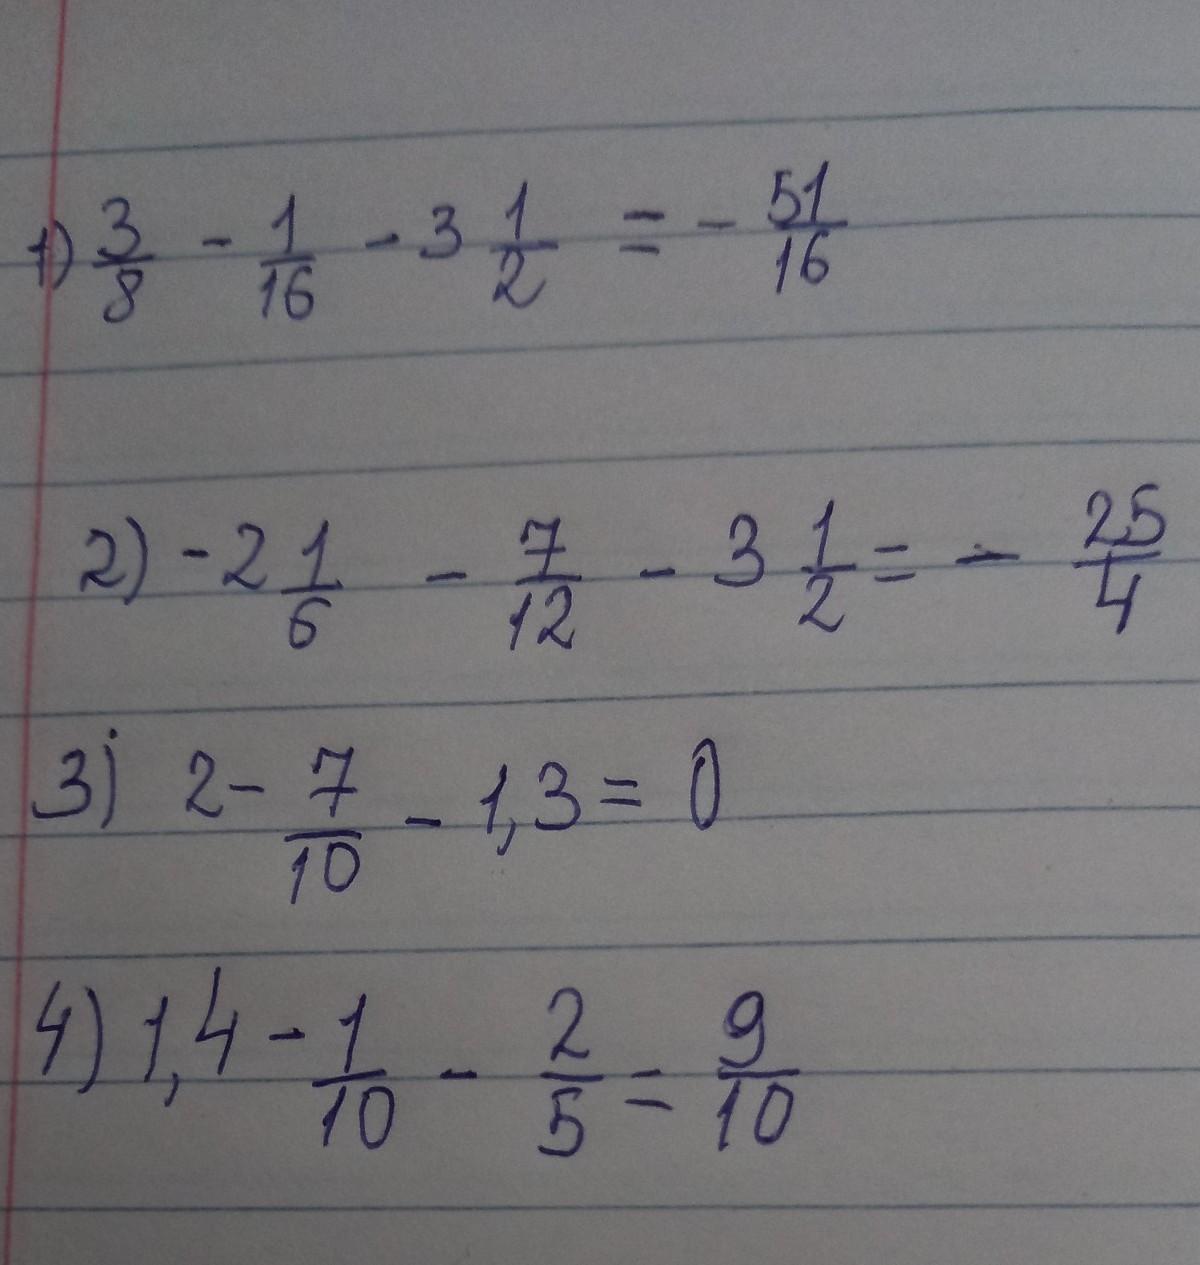 1) 3/8 - 1/16 - 3 1/2 = - 51/16
2) - 2 1/6 - 7/12 - 3 1/2 = - 25/4
3) 2 - 7/10 - 1,3 = 0
4) 1,4 - 1/10 - 2/5 = 9/10